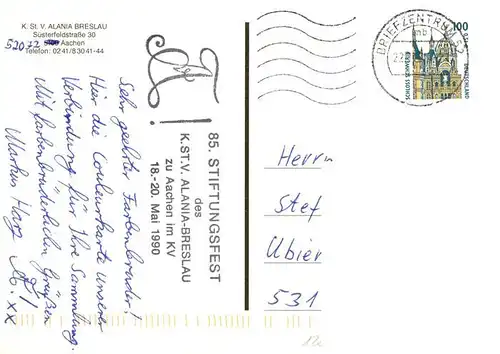 K. St. V. ALANIA BRESLAU
Süsterfeldstraße 30
52072 Aachen
Telefon: 0241/8 30 41-44
85. STIFTUNGSFEST
des
K.ST.V. ALANIA-BRESLAU
zu Aachen im KV
18.-20. Mai 1990
Sehr geehrter Farbenbruder!
Hier die Couleurkarte unserer
Verbindung für Ihre Sammlung.
Mit farbenbrüderlichen Grüßen
Markus Harz
xx
BRIEFZENTRUM 52
mb
100
SCHLOSS SCHWERIN
DEUTSCHLAND
Herrn
Stef
Ubier
531